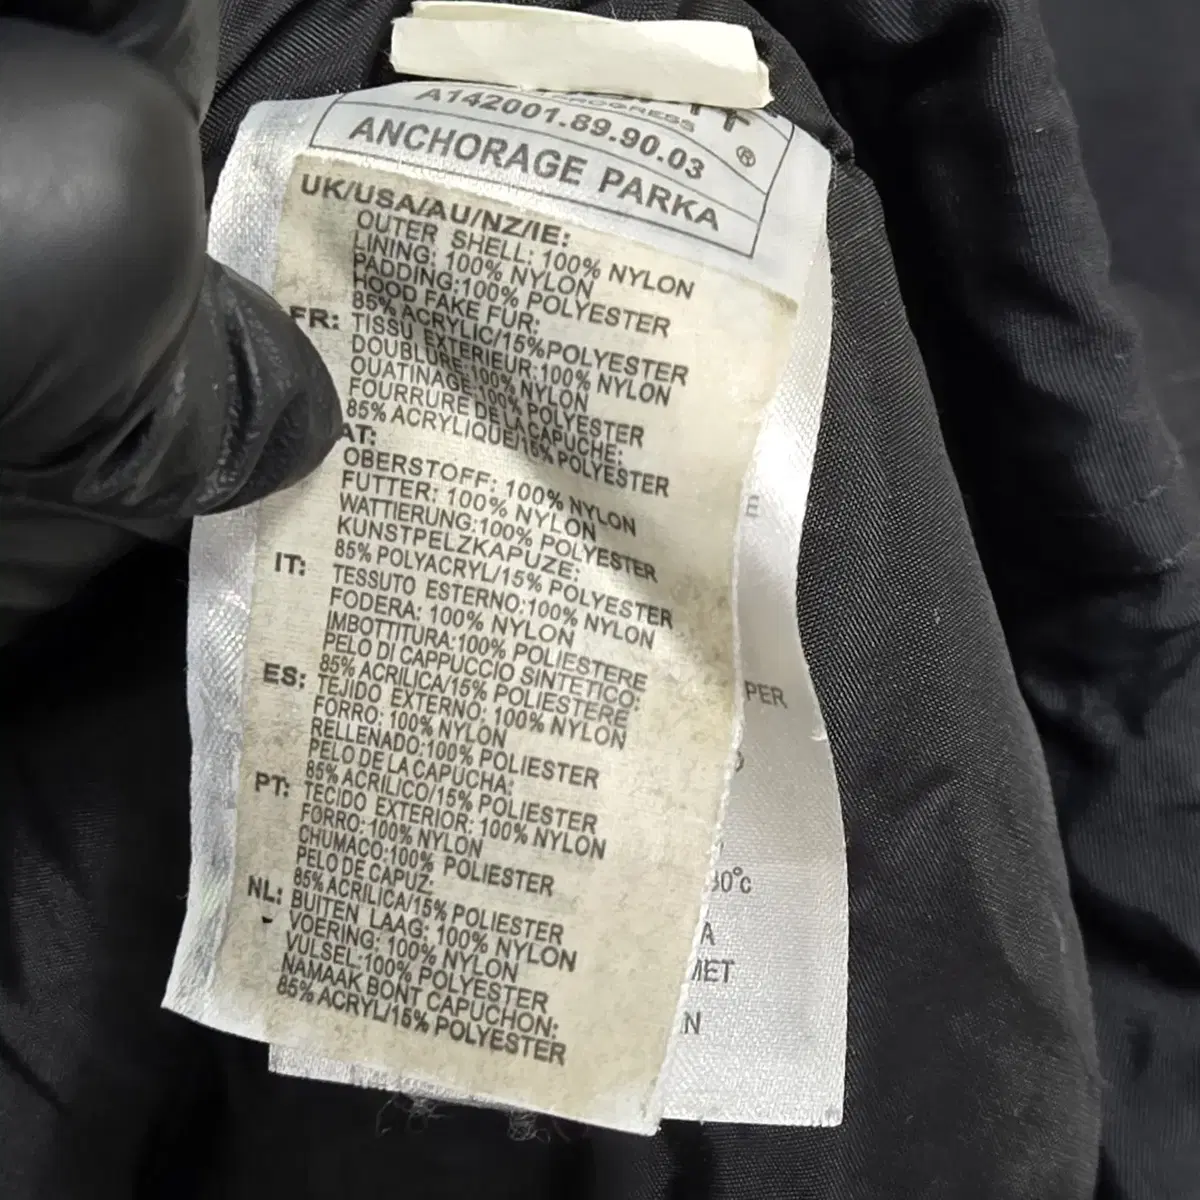 PROGRESS
®
A142001.89.90.03
ANCHORAGE PARKA
UK/USA/AU/NZ/IE:
OUTER SHELL: 100% NYLON
LINING: 100% NYLON
PADDING:100% POLYESTER
HOOD FAKE FUR:
85% ACRYLIC/15%POLYESTER
FR: TISSU EXTERIEUR:100% NYLON
DOUBLURE:100% NYLON
OUATINAGE:100% POLYESTER
FOURRURE DE LA CAPUCHE:
85% ACRYLIQUE/15% POLYESTER
AT:
OBERSTOFF: 100% NYLON
FUTTER: 100% NYLON
WATTIERUNG:100% POLYESTER
KUNSTPELZKAPUZE:
85% POLYACRYL/15% POLYESTER
IT: TESSUTO ESTERNO:100% NYLON
FODERA: 100% NYLON
IMBOTTITURA:100% POLIESTERE
PELO DI CAPPUCCIO SINTETICO:
85% ACRILICA/15% POLIESTERE
ES: TEJIDO EXTERNO: 100% NYLON
FORRO: 100% NYLON
RELLENADO:100% POLIESTER
PELO DE LA CAPUCHA:
85% ACRILICO/15% POLIESTER
PT: TECIDO EXTERIOR: 100% NYLON
FORRO: 100% NYLON
CHUMACO:100% POLIESTER
PELO DE CAPUZ:
85% ACRILICA/15% POLIESTER
NL: BUITEN LAAG: 100% NYLON
VOERING: 100% NYLON
VULSEL:100% POLYESTER
NAMAAK BONT CAPUCHON:
85% ACRYL/15% POLYESTER
E
PER
30°c
A
MET
N